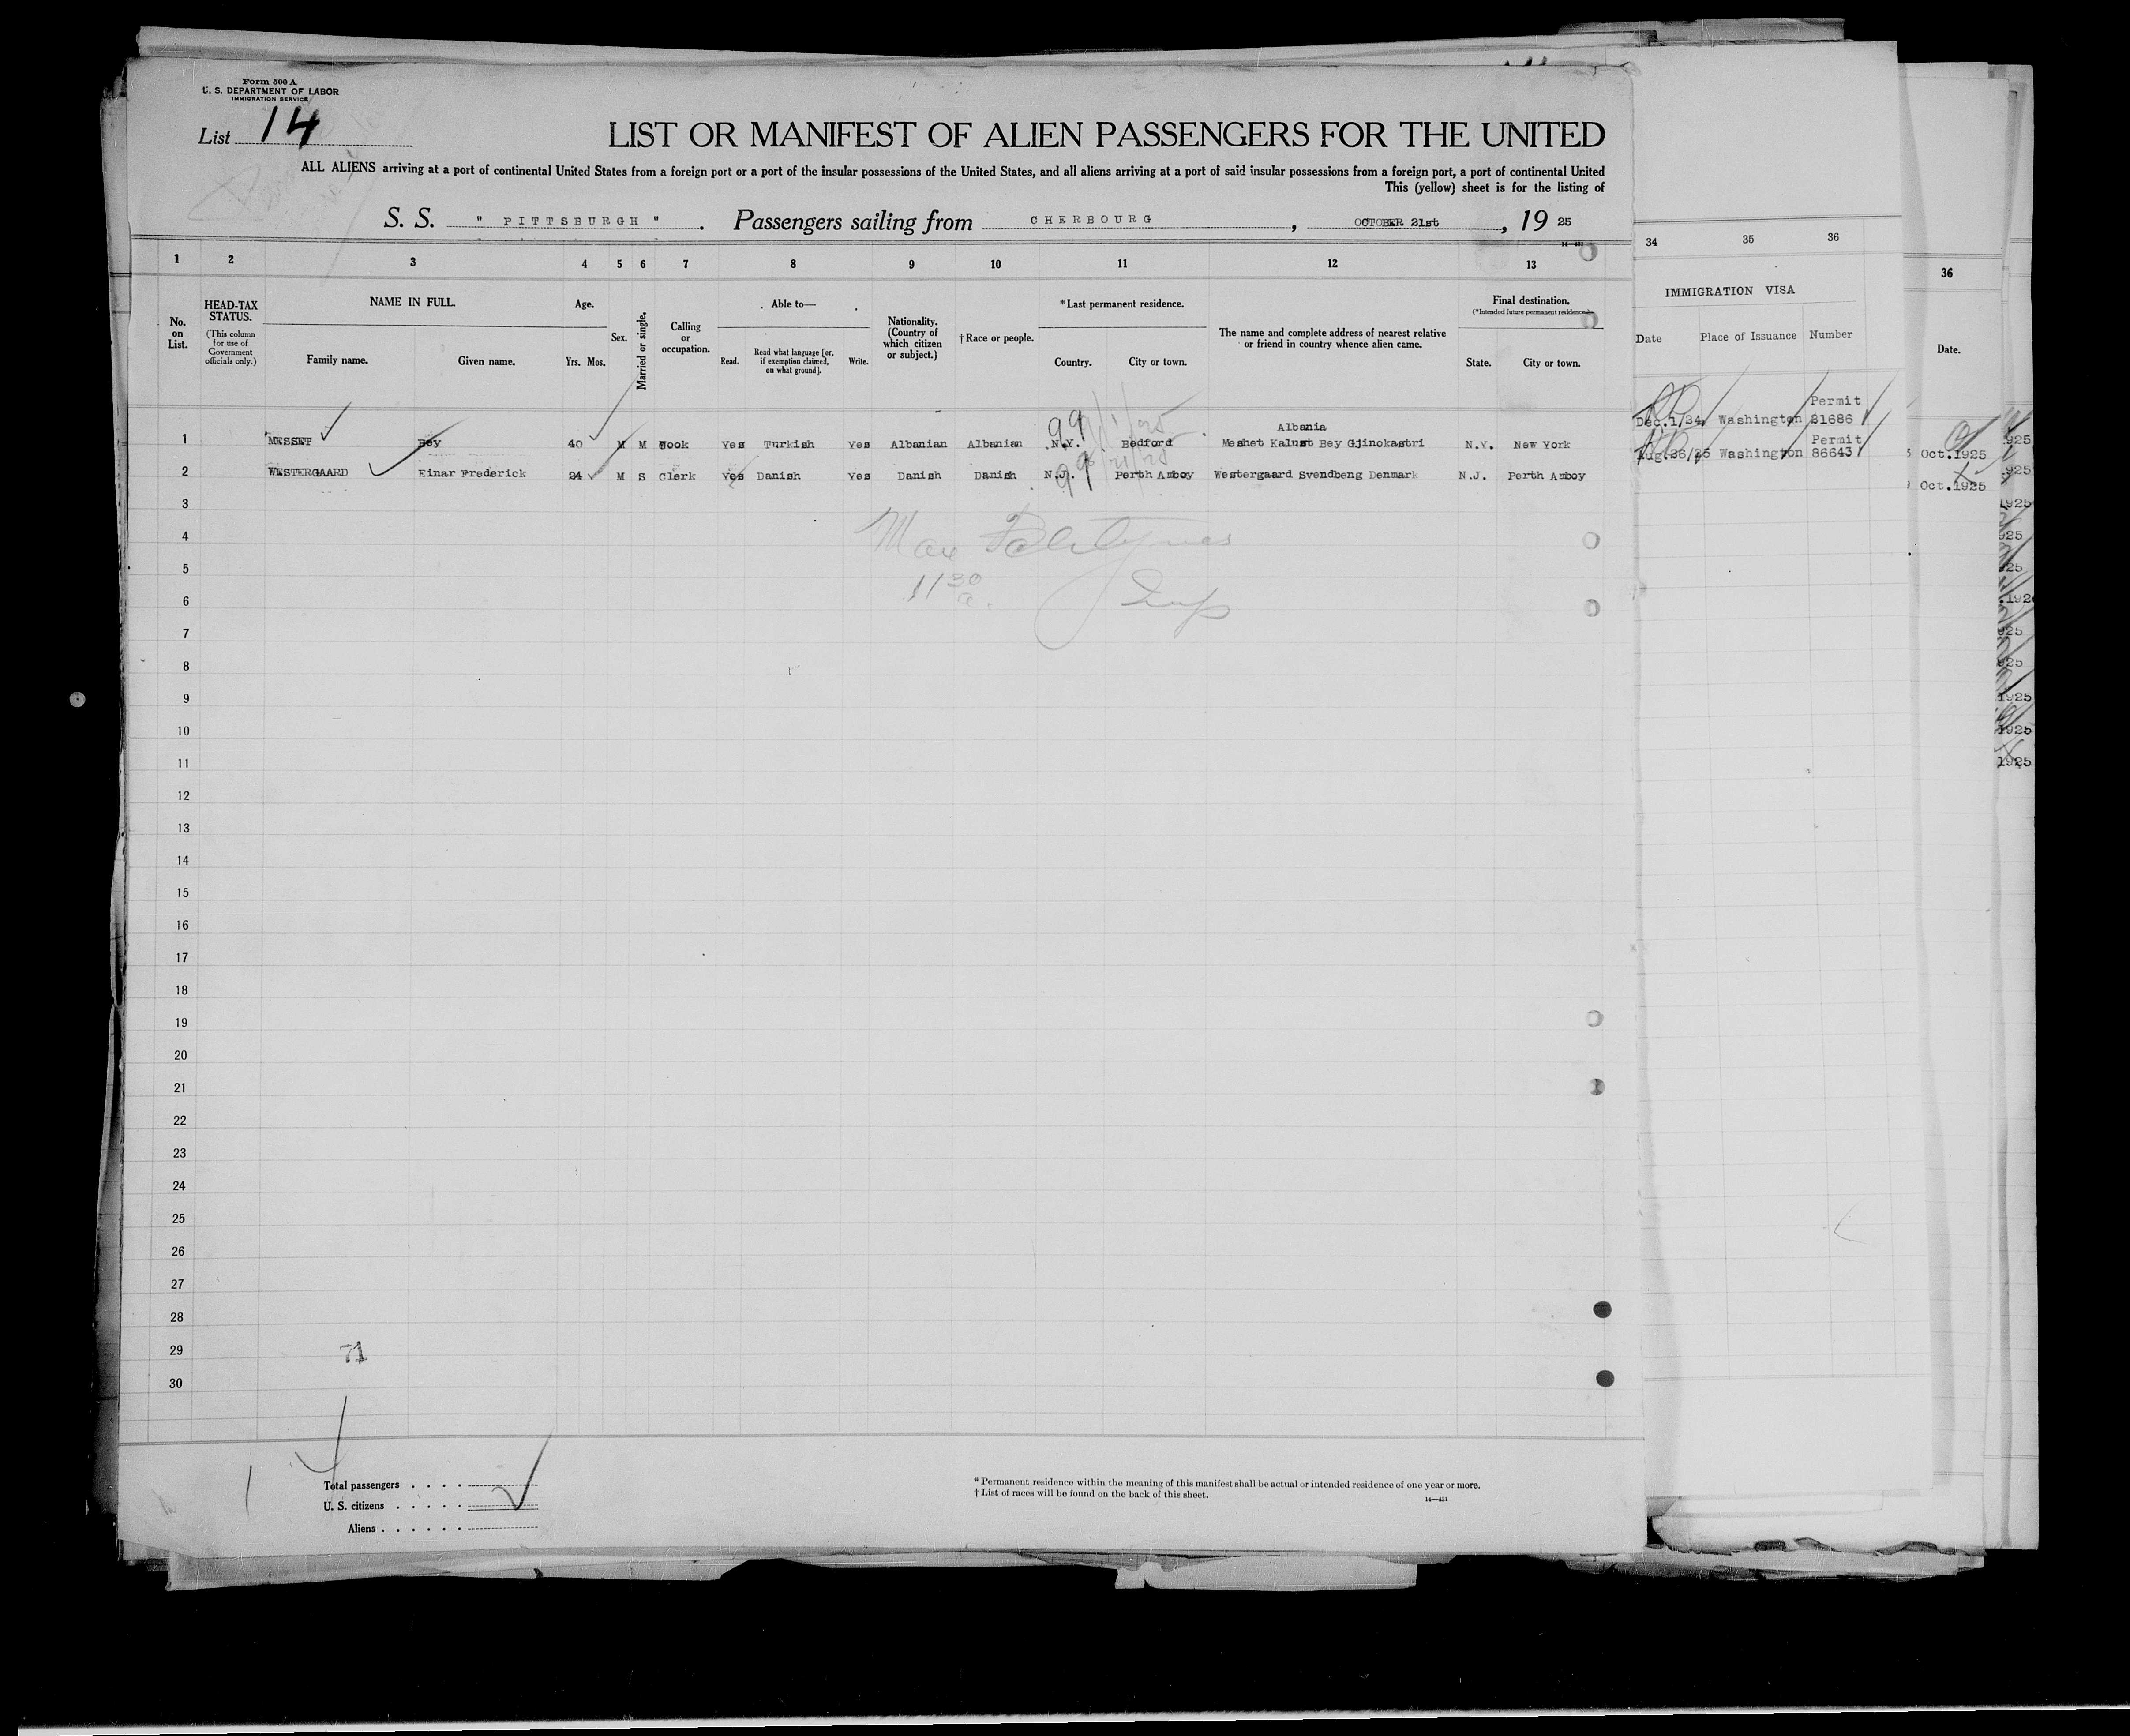 Form 500 A
U. S. DEPARTMENT OF LABOR
IMMIGRATION SERVICE
List 14
LIST OR MANIFEST OF ALIEN PASSENGERS FOR THE UNITED
ALL ALIENS arriving at a port of continental United States from a foreign port or a port of the insular possessions of the United States, and all aliens arriving at a port of said insular possessions from a foreign port, a port of continental United
This (yellow) sheet is for the listing of
S. S. " PITTSBURGH ". Passengers sailing from CHERBOURG, OCTOBER 21st, 19 25
1 2 3 4 5 6 7 8 9 10 11 12 13 34 35 36 36
No. on List.
HEAD-TAX STATUS.
(This column for use of Government officials only.)
NAME IN FULL.
Family name. Given name.
Age.
Yrs. Mos.
Sex.
Married or single.
Calling or occupation.
Able to—
Read. Read what language [or, if exemption claimed, on what ground]. Write.
Nationality. (Country of which citizen or subject.)
†Race or people.
*Last permanent residence.
Country. City or town.
The name and complete address of nearest relative or friend in country whence alien came.
Final destination.
(*Intended future permanent residence.)
State. City or town.
IMMIGRATION VISA
Date Place of Issuance Number
Date.
99
Albania
Permit
1 MESSET Bey 40 M M Cook Yes Turkish Yes Albanian Albanian N.Y. Bedford Meshet Kalust Bey Gjinokastri N.Y. New York Dec.1/24 Washington 21686
99
Permit
2 WESTERGAARD Einar Frederick 24 M S Clerk Yes Danish Yes Danish Danish N.J. Perth Amboy Westergaard Svendbeng Denmark N.J. Perth Amboy Aug.26/25 Washington 86643
Oct.1925
Oct.1925
3
4
5
1130 a.
6
7
8
9
10
11
12
13
14
15
16
17
18
19
20
21
22
23
24
25
26
27
28
29
71
30
Total passengers
U. S. citizens
Aliens
* Permanent residence within the meaning of this manifest shall be actual or intended residence of one year or more.
† List of races will be found on the back of this sheet.
14—431